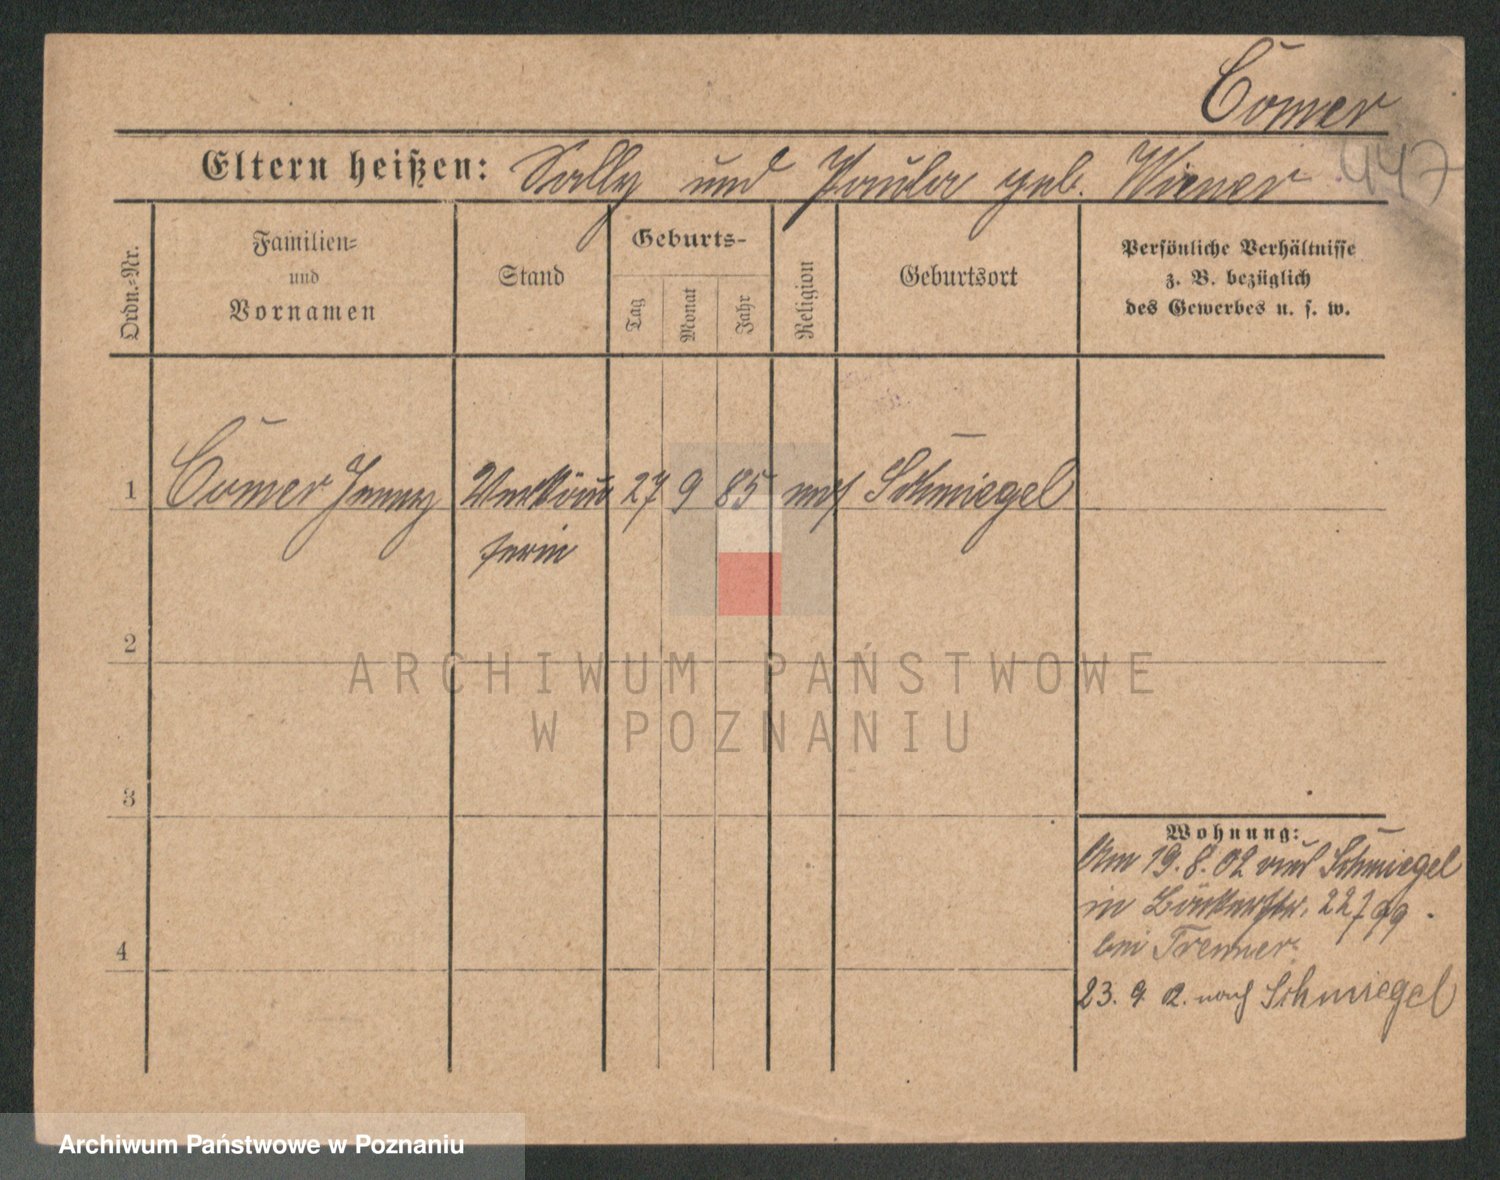 Comer
447
Eltern heißen: Sally und Paula geb. Wiener
Ordn.-Nr.
Familien-
und
Vornamen
Stand
Geburts-
Tag
Monat
Jahr
Religion
Geburtsort
Persönliche Verhältnisse
z. B. bezüglich
des Gewerbes u. s. w.
1 Comer Jenny Verkäu 27 9 85 mos Schmiegel
ferin
2
ARCHIWUM PAŃSTWOWE
W POZNANIU
3
Wohnung:
Am 19.8.02 aus Schmiegel
in Bäckerstr. 22
bei
4
23. 9. 2. nach Schmiegel
Archiwum Państwowe w Poznaniu